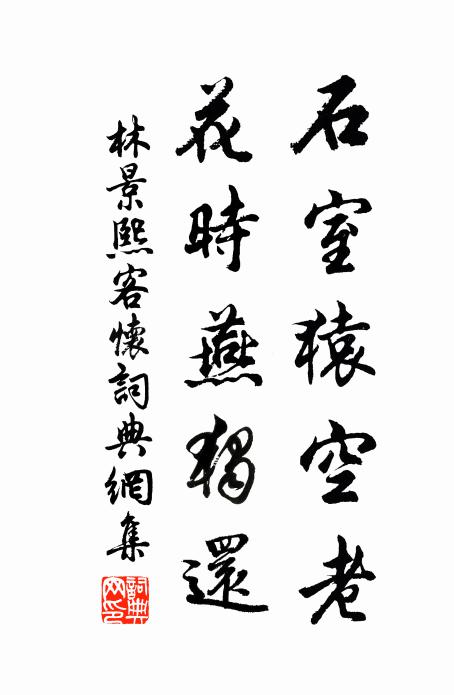 石室猿空老
花時燕獨還
林景熙客懷詞典網集
詞典網印